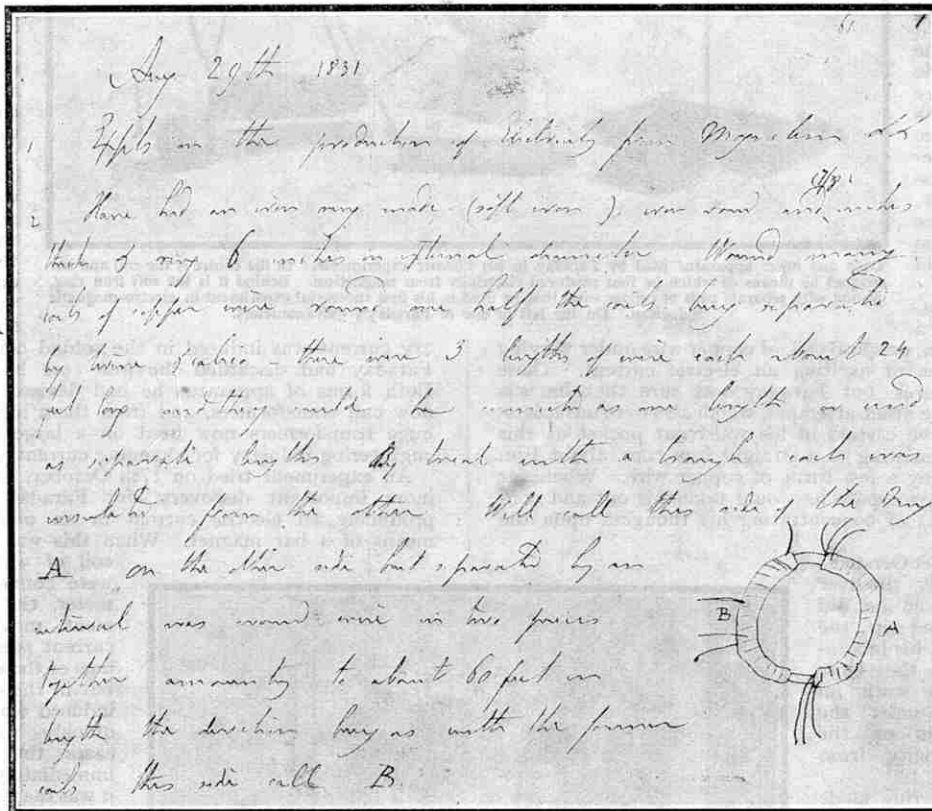 61 1
Aug 29th 1831
1 Expts on the production of Electricity from Magnetism etc
2 Have had an iron ring made (soft iron), iron round and 7/8 inches
thick & ring 6 inches in external diameter Wound many
coils of copper wire round one half the coils being separated
by twine & calico there were 3 lengths of wire each about 24
feet long and they could be connected as one length or used
as separate lengths By trial with a trough each was
insulated from the other Will call this side of the ring
A on the other side but separated by an
interval was wound wire in two pieces
together amounting to about 60 feet in
length the direction being as with the former
coils this side call B
B A